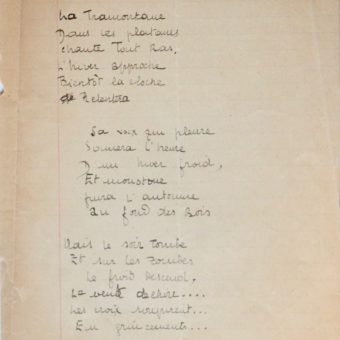 La Tramontane
Dans les platanes
Chante Tout Bas,
L'hiver approche
Bientôt la cloche
Retentira
Sa voix qui pleure
Sonnera l'heure
D'un hiver froid,
Et monotone
fuira l'automne
au fond des Bois
Mais le soir Tombe
Et sur les Tombes
Le froid descend.
Le vent déchire....
Les croix soupirent...
En grincements...